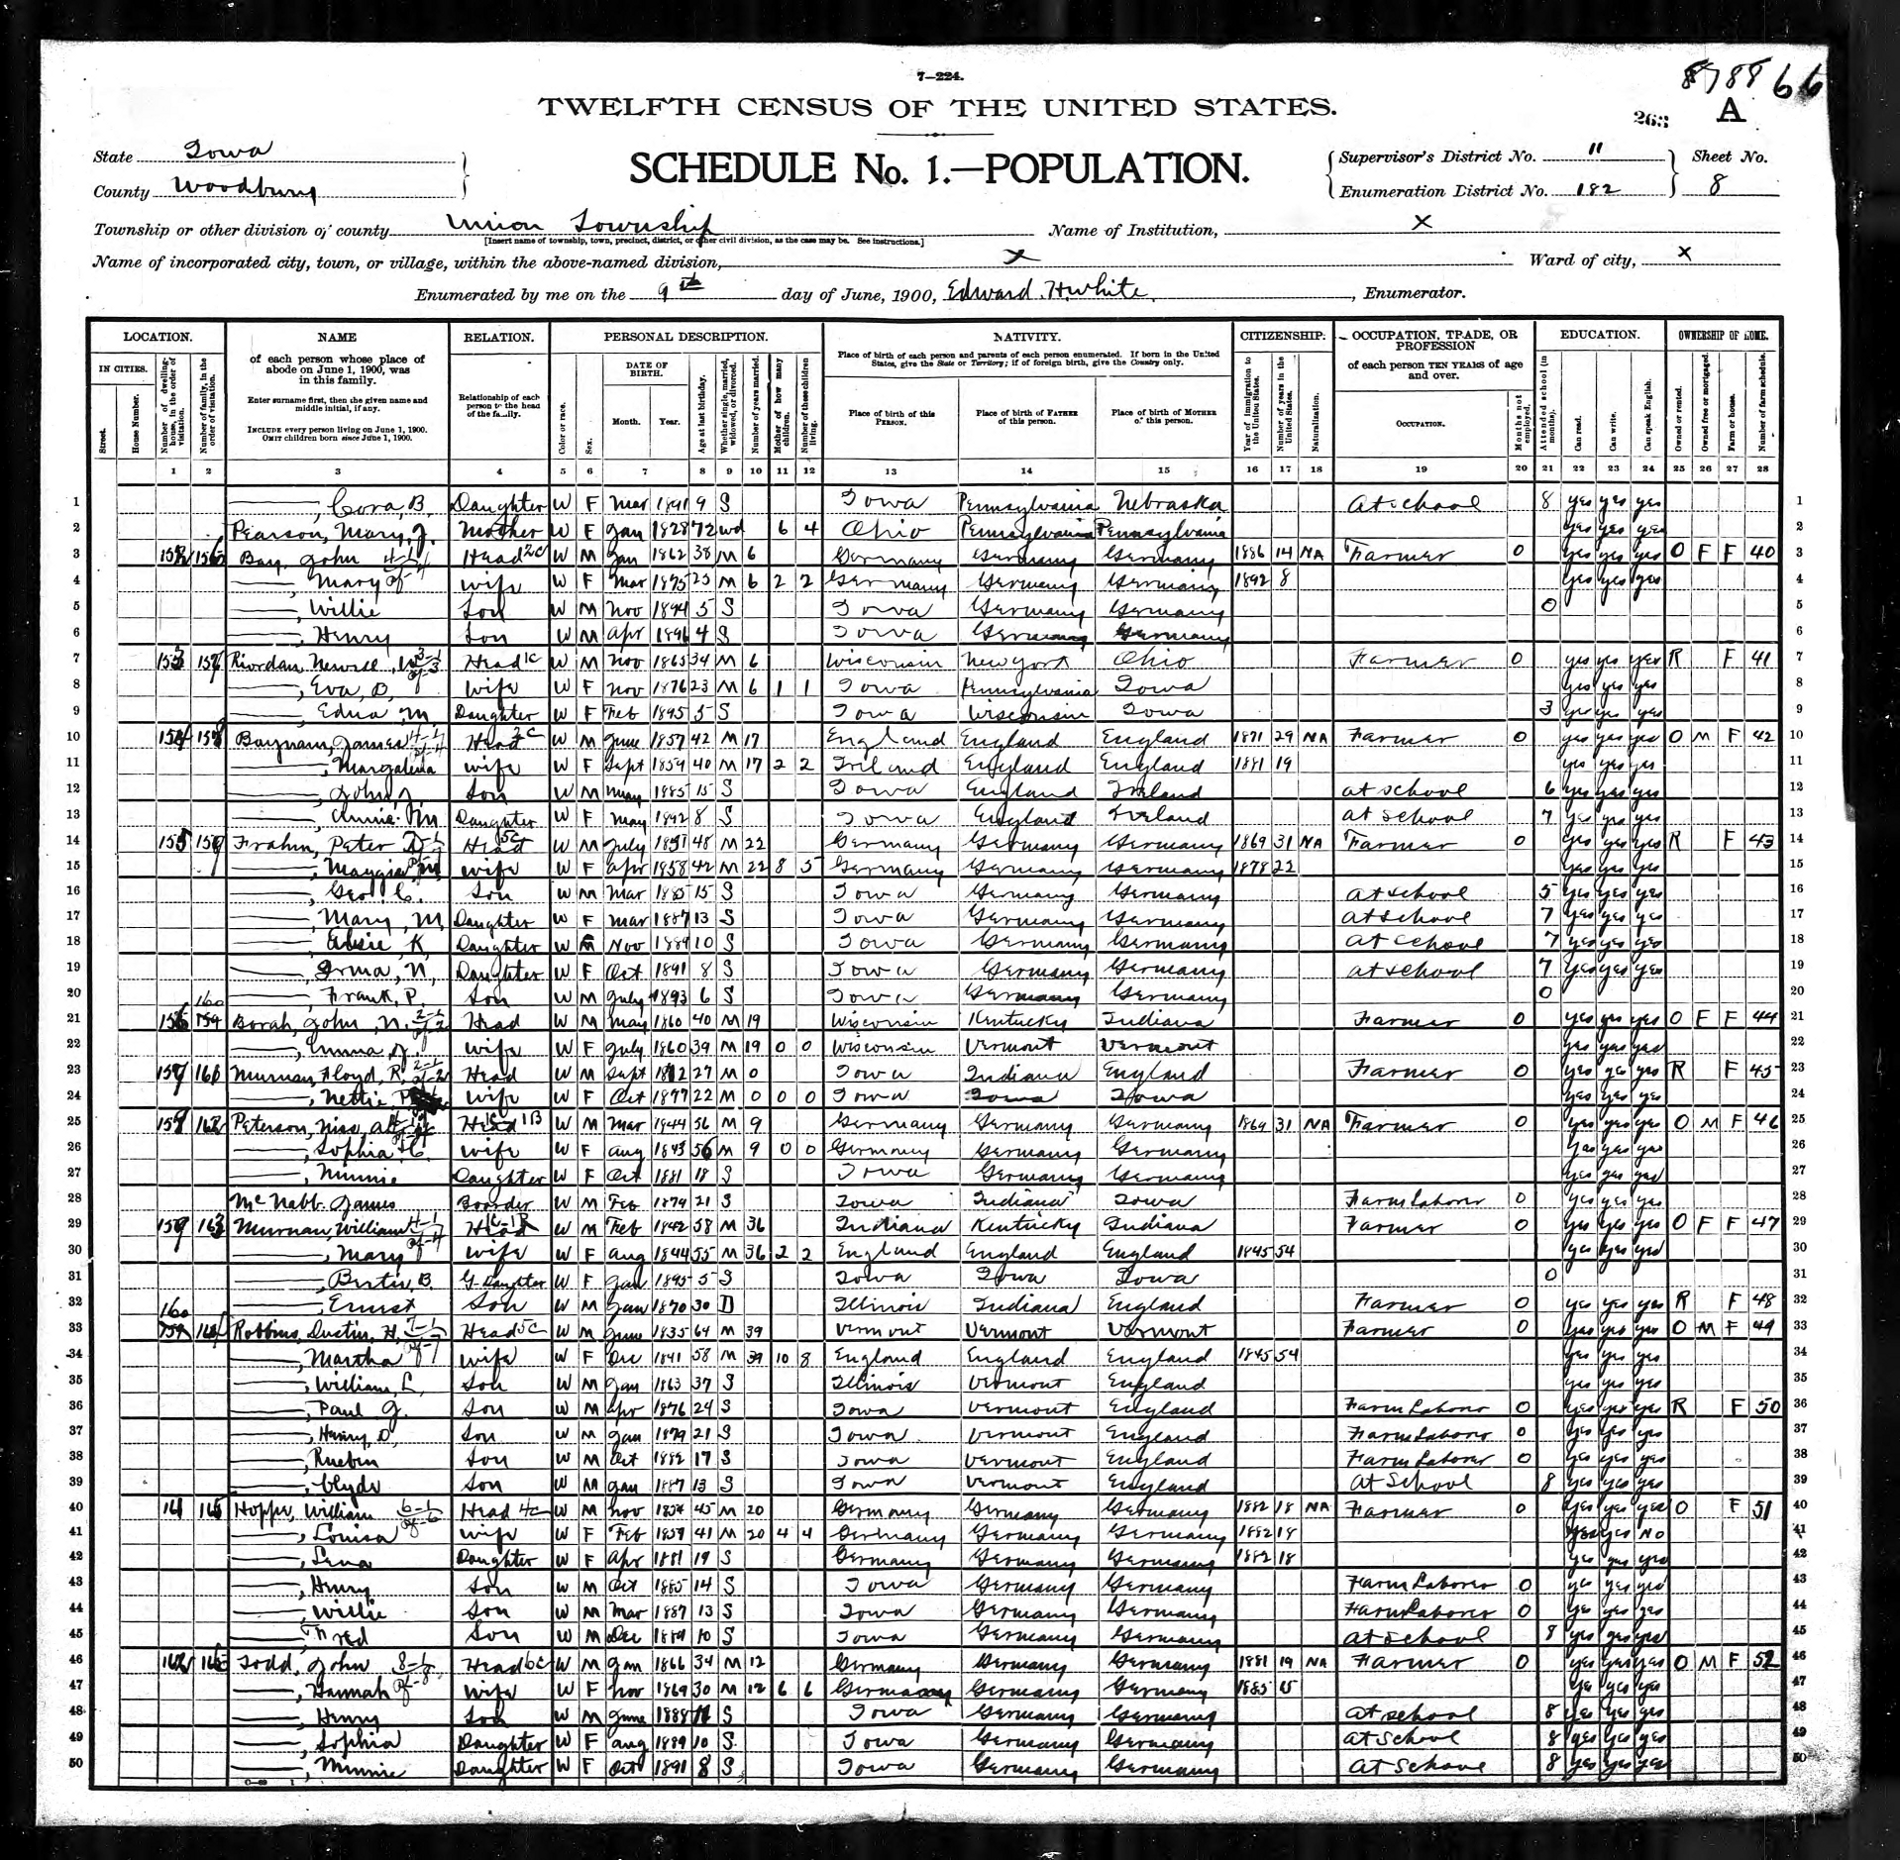 7—224.
878866
TWELFTH CENSUS OF THE UNITED STATES.
263 A
State Iowa
County Woodbury
SCHEDULE No. 1.—POPULATION.
Supervisor's District No. 11
Enumeration District No. 182
Sheet No. 8
Township or other division of county Union Township Name of Institution, X
[Insert name of township, town, precinct, district, or other civil division, as the case may be. See instructions.]
Name of incorporated city, town, or village, within the above-named division, X Ward of city, X
Enumerated by me on the 9th day of June, 1900, Edward H. White, Enumerator.
LOCATION. NAME RELATION. PERSONAL DESCRIPTION. NATIVITY. CITIZENSHIP. OCCUPATION, TRADE, OR PROFESSION EDUCATION. OWNERSHIP OF HOME.
IN CITIES. Street. House Number. Number of dwelling-house, in the order of visitation. Number of family, in the order of visitation.
of each person whose place of abode on June 1, 1900, was in this family.
Enter surname first, then the given name and middle initial, if any.
INCLUDE every person living on June 1, 1900. OMIT children born since June 1, 1900.
Relationship of each person to the head of the family.
Color or race. Sex. DATE OF BIRTH. Month. Year. Age at last birthday. Whether single, married, widowed, or divorced. Number of years married. Mother of how many children. Number of these children living.
Place of birth of each person and parents of each person enumerated. If born in the United States, give the State or Territory; if of foreign birth, give the Country only.
Place of birth of this PERSON. Place of birth of FATHER of this person. Place of birth of MOTHER of this person.
Year of immigration to the United States. Number of years in the United States. Naturalization.
of each person TEN YEARS of age and over.
OCCUPATION. Months not employed. Attended school (in months). Can read. Can write. Can speak English. Owned or rented. Owned free or mortgaged. Farm or house. Number of farm schedule.
1 2 3 4 5 6 7 8 9 10 11 12 13 14 15 16 17 18 19 20 21 22 23 24 25 26 27 28
1 , Cora, B. Daughter W F Mar 1891 9 S Iowa Pennsylvania Nebraska At school 8 yes yes yes 1
2 Pearson, Mary, J. Mother W F Jan 1828 72 wd 6 4 Ohio Pennsylvania Pennsylvania yes yes yes 2
3 John Head W M Jan 1862 38 M 6 Germany Germany Germany 1886 14 NA Farmer 0 yes yes yes O F F 40 3
4 , Mary wife W F Mar 1875 25 M 6 2 2 Germany Germany Germany 1892 8 yes yes yes 4
5 , Willie Son W M Nov 1894 5 S Iowa Germany Germany 0 5
6 , Henry Son W M Apr 1896 4 S Iowa Germany Germany 6
7 Riordan, Newell Head W M Nov 1865 34 M 6 Wisconsin New York Ohio Farmer 0 yes yes yes R F 41 7
8 , Eva, D. wife W F Nov 1876 23 M 6 1 1 Iowa Pennsylvania Iowa yes yes yes 8
9 , Edna, M. Daughter W F Feb 1895 5 S Iowa Wisconsin Iowa 3 yes yes yes 9
10 James Head W M June 1857 42 M 17 England England England 1871 29 NA Farmer 0 yes yes yes O M F 42 10
11 wife W F Sept 1859 40 M 17 2 2 Ireland England England 1881 19 yes yes yes 11
12 , John Son W M May 1885 15 S Iowa England Ireland at school 6 yes yes yes 12
13 , Annie M Daughter W F May 1892 8 S Iowa England Ireland at school 7 yes yes yes 13
14 Frahm, Peter Head W M July 1851 48 M 22 Germany Germany Germany 1869 31 NA Farmer 0 yes yes yes R F 43 14
15 , Maggie wife W F Apr 1858 42 M 22 8 5 Germany Germany Germany 1878 22 yes yes yes 15
16 , Geo. C. Son W M Mar 1885 15 S Iowa Germany Germany At school 5 yes yes yes 16
17 , Mary, M. Daughter W F Mar 1887 13 S Iowa Germany Germany At school 7 yes yes yes 17
18 , Elsie, K Daughter W F Nov 1889 10 S Iowa Germany Germany At school 7 yes yes yes 18
19 , Irma, N, Daughter W F Oct 1891 8 S Iowa Germany Germany At school 7 yes yes yes 19
20 , Frank, P. Son W M July 1893 6 S Iowa Germany Germany 0 20
21 Borah, John, N. Head W M May 1860 40 M 19 Wisconsin Kentucky Indiana Farmer 0 yes yes yes O F F 44 21
22 , Emma wife W F July 1860 39 M 19 0 0 Wisconsin Vermont Vermont yes yes yes 22
23 157 161 Murnan, Floyd, R. Head W M Sept 27 M 0 Iowa Indiana England Farmer 0 yes yes yes R F 45 23
24 , Nettie wife W F Oct 1877 22 M 0 0 0 Iowa Iowa Iowa yes yes yes 24
25 Peterson, Head W M Mar 1844 56 M 9 Germany Germany Germany 1869 31 NA Farmer 0 yes yes yes O M F 46 25
26 , Sophia C. wife W F Aug 1843 56 M 9 0 0 Germany Germany Germany yes yes yes 26
27 , Minnie Daughter W F Oct 1881 18 S Iowa Germany Germany yes yes yes 27
28 McNabb, James Boarder W M Feb 1879 21 S Iowa Indiana Iowa Farm Laborer 0 yes yes yes 28
29 159 163 Murnan, William Head W M Feb 1842 58 M 36 Indiana Kentucky Indiana Farmer 0 yes yes yes O F F 47 29
30 , Mary wife W F Aug 1844 55 M 36 2 2 England England England 1845 54 yes yes yes 30
31 , Bertie, B. G. Daughter W F Jan 1895 5 S Iowa Iowa Iowa 0 31
32 , Ernest Son W M Jan 1870 30 D Illinois Indiana England Farmer 0 yes yes yes R F 48 32
33 160 164 Robbins, Dustin, H. Head W M June 1835 64 M 39 Vermont Vermont Vermont Farmer 0 yes yes yes O M F 49 33
34 , Martha wife W F Dec 1841 58 M 39 10 8 England England England 1845 54 yes yes yes 34
35 , William, L. Son W M Jan 1863 37 S Illinois Vermont England yes yes yes 35
36 , Paul J. Son W M Apr 1876 24 S Iowa Vermont England Farm Laborer 0 yes yes yes R F 50 36
37 , Henry, D, Son W M Jan 1879 21 S Iowa Vermont England Farm Laborer 0 yes yes yes 37
38 , Rueben Son W M Oct 1882 17 S Iowa Vermont England Farm Laborer 0 yes yes yes 38
39 , Clyde Son W M Jan 1887 13 S Iowa Vermont England At School 8 yes yes yes 39
40 161 165 Hoppe, William Head W M Nov 1854 45 M 20 Germany Germany Germany 1882 18 NA Farmer 0 yes yes yes O F 51 40
41 , Louisa wife W F Feb 1859 41 M 20 4 4 Germany Germany Germany 1882 18 yes yes No 41
42 , Lena Daughter W F Apr 1881 19 S Germany Germany Germany 1882 18 yes yes yes 42
43 , Henry Son W M Oct 1885 14 S Iowa Germany Germany Farm Laborer 0 yes yes yes 43
44 , Willie Son W M Mar 1887 13 S Iowa Germany Germany Farm Laborer 0 yes yes yes 44
45 , Fred Son W M Dec 1889 10 S Iowa Germany Germany at school 8 yes yes yes 45
46 162 166 Todd, John Head W M Jan 1866 34 M 12 Germany Germany Germany 1881 19 NA Farmer 0 yes yes yes O M F 52 46
47 , Hannah wife W F Nov 1869 30 M 12 6 6 Germany Germany Germany 1885 15 yes yes yes 47
48 , Henry Son W M June 1888 11 S Iowa Germany Germany at school 8 yes yes yes 48
49 , Sophia Daughter W F Aug 1889 10 S Iowa Germany Germany At School 8 yes yes yes 49
50 , Minnie Daughter W F Oct 1891 8 S Iowa Germany Germany At School 8 yes yes yes 50